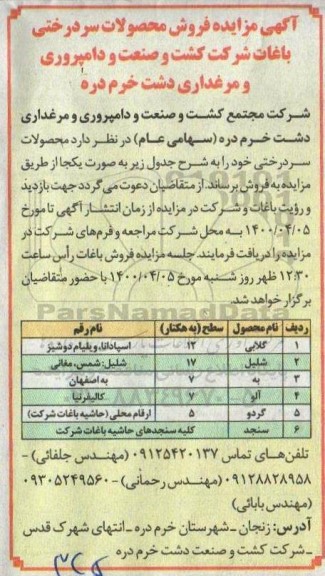 آگهی مزایده فروش محصولات سردرختی
باغات شرکت کشت و صنعت و دامپروری
و مرغداری دشت خرم دره
شرکت مجتمع کشت و صنعت و دامپروری و مرغداری
دشت خرم دره (سهامی عام) در نظر دارد محصولات
سردرختی خود را به شرح جدول زیر به صورت یکجا از طریق
مزایده به فروش برساند. از متقاضیان دعوت می گردد جهت بازدید
و رؤیت باغات و شرکت در مزایده از زمان انتشار آگهی تا مورخ
۱۴۰۰/۰۴/۰۵ به محل شرکت مراجعه و فرم های شرکت در
مزایده را دریافت فرمایند. جلسه مزایده فروش باغات رأس ساعت
۱۲:۳۰ ظهر روز شنبه مورخ ۱۴۰۰/۰۴/۰۵ با حضور متقاضیان
برگزار خواهد شد.
ParsNamadData
ردیف نام محصول سطح (به هکتار) نام رقم
۱ گلابی ۱۲ اسپادانا، ویلیام دوشیز
۲ شلیل ۱۷ شلیل: شمس، مغانی
۳ به ۷ به اصفهان
۴ آلو ۷ کالیفرنیا
۵ گردو ۵ ارقام محلی (حاشیه باغات شرکت)
۶ سنجد کلیه سنجدهای حاشیه باغات شرکت
تلفن های تماس ۰۹۱۲۵۴۲۰۱۳۷ (مهندس جلفائی) -
۰۹۱۲۸۸۲۸۹۵۸ (مهندس رحمانی) - ۰۹۳۰۵۲۴۹۵۶۰
(مهندس بابائی)
آدرس: زنجان - شهرستان خرم دره - انتهای شهرک قدس
- شرکت کشت و صنعت دشت خرم دره